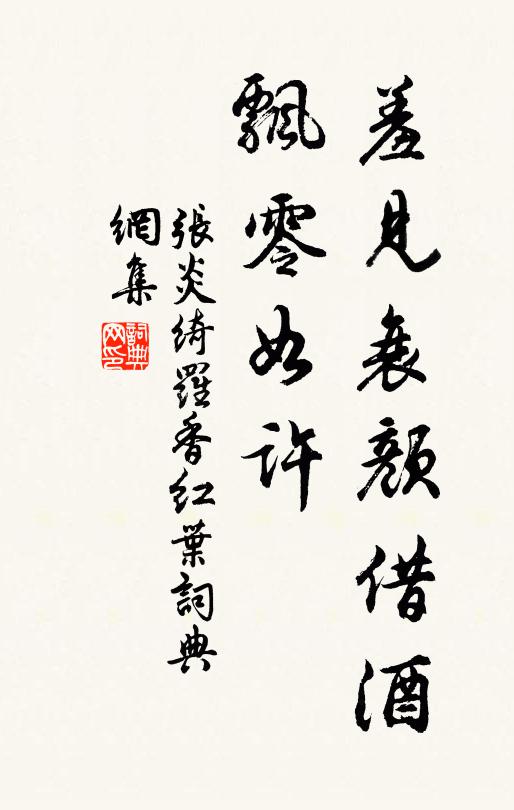 羞見衰顏借酒
飄零如許
張炎綺羅香紅葉詞典
網集
詞典
网印